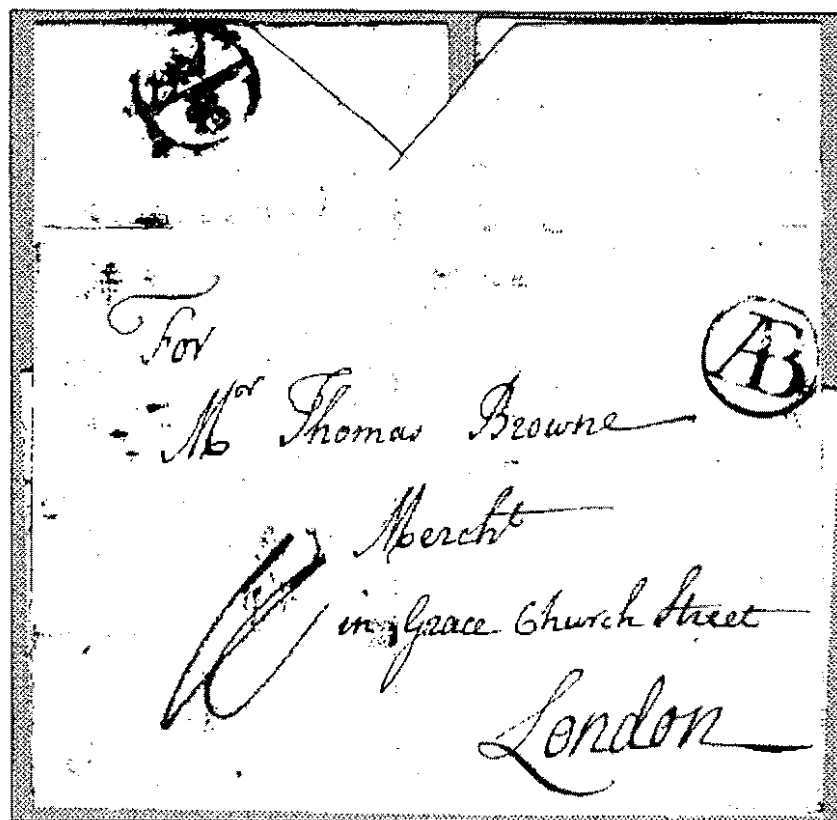 For
Mor Thomas Browne
Mercht
in Grace Church Street
London
AB